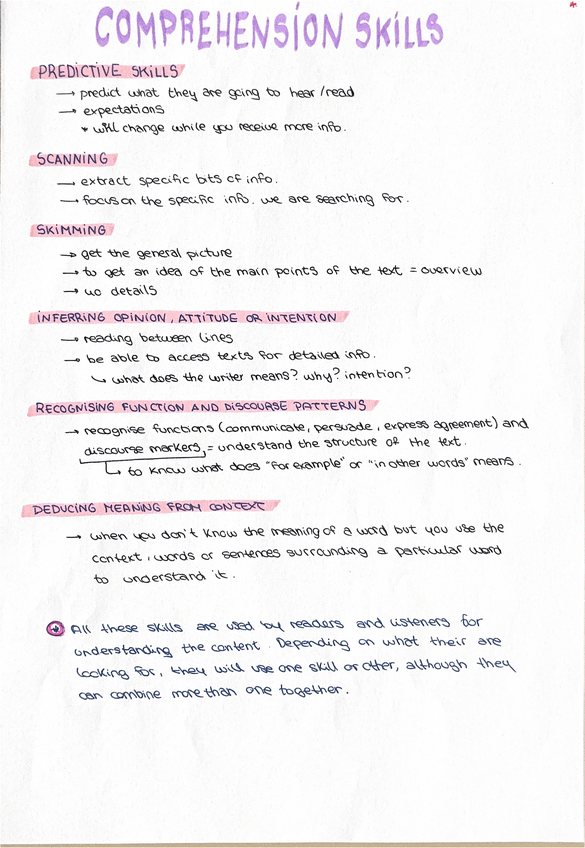 COMPREHENSION SKILLS
PREDICTIVE SKILLS
→ predict what they are going to hear/read
→ expectations
* will change while you receive more info.
SCANNING
→ extract specific bits of info.
→ focus on the specific info. we are searching for.
SKIMMING
→ get the general picture
→ to get an idea of the main points of the text = overview
→ no details
INFERRING OPINION, ATTITUDE OR INTENTION
→ reading between lines
→ be able to access texts for detailed info.
↳ what does the writer means? why? intention?
RECOGNISING FUNCTION AND DISCOURSE PATTERNS
→ recognise functions (communicate, persuade, express agreement) and
discourse markers, = understand the structure of the text.
↳ to know what does "for example" or "in other words" means.
DEDUCING MEANING FROM CONTEXT
→ when you don't know the meaning of a word but you use the
context, words or sentences surrounding a particular word
to understand it.
All these skills are used by readers and listeners for
understanding the content. Depending on what their are
looking for, they will use one skill or other, although they
can combine more than one together.